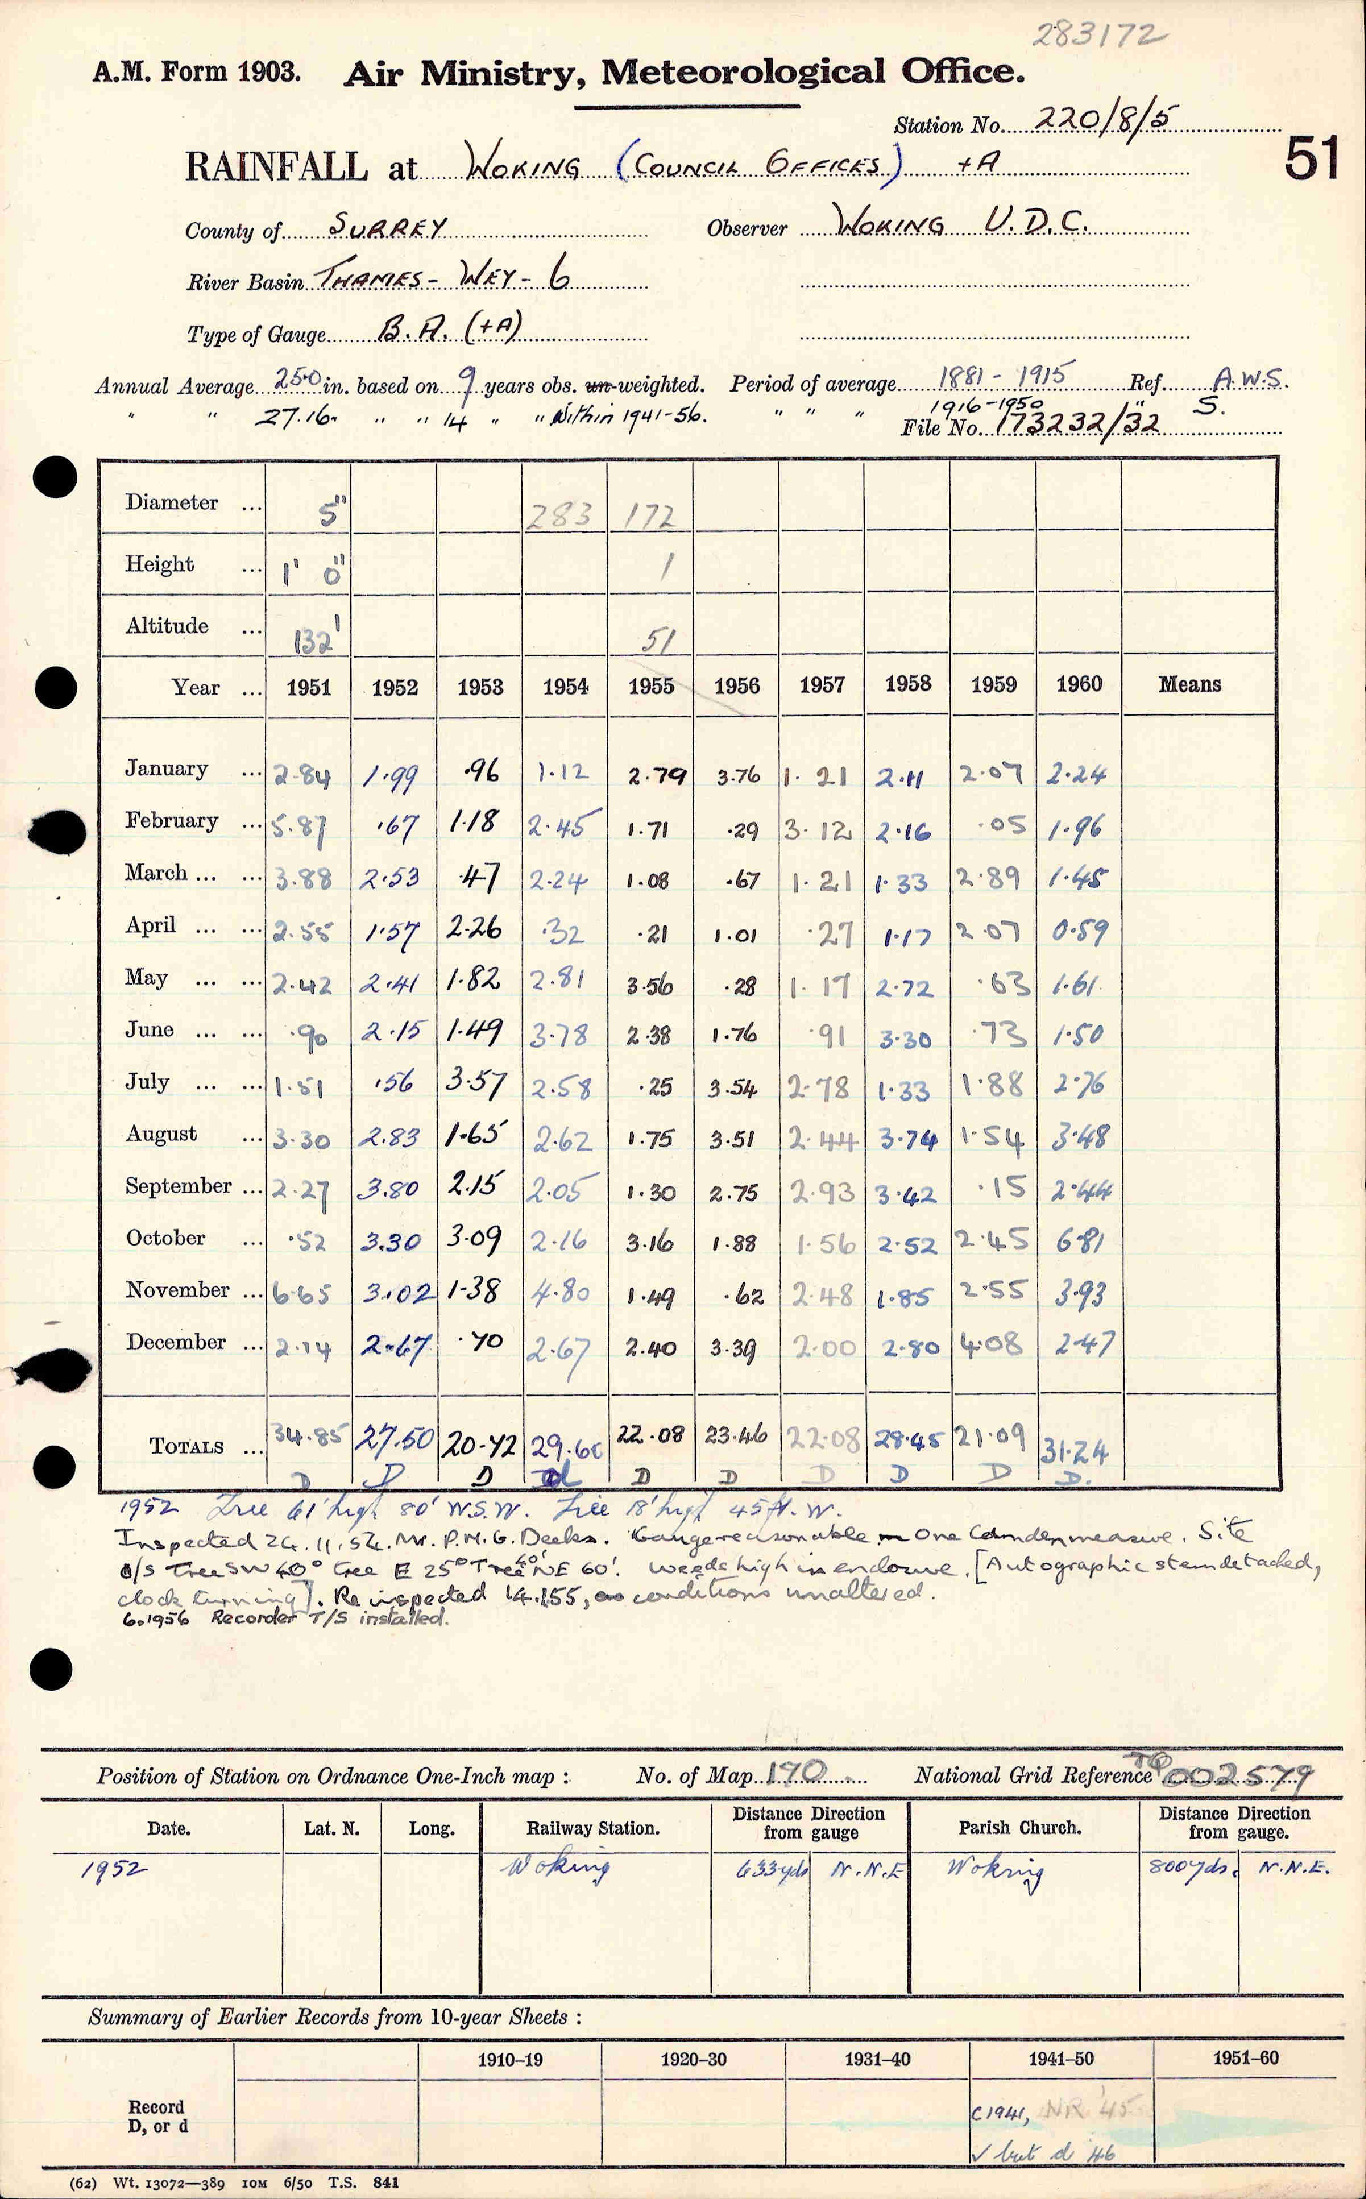 283172
A.M. Form 1903. Air Ministry, Meteorological Office.
Station No. 220/8/5
51
RAINFALL at WOKING (COUNCIL OFFICES) +A
County of SURREY Observer WOKING U.D.C.
River Basin THAMES - WEY - 6
Type of Gauge B.A. (+A)
Annual Average 25.0 in. based on 9 years obs. un-weighted. Period of average 1881 - 1915 Ref. A.W.S.
" " 27.16 " " 14 " " Within 1941-56. " " " 1916-1950 " S.
File No. 173232/32
Diameter ... 5" 283 172
Height ... 1' 0" 1
Altitude ... 132' 51
Year ... 1951 1952 1953 1954 1955 1956 1957 1958 1959 1960 Means
January ... 2.84 1.99 .96 1.12 2.79 3.76 1.21 2.11 2.07 2.24
February ... 5.87 .67 1.18 2.45 1.71 .29 3.12 2.16 .05 1.96
March ... ... 3.88 2.53 .47 2.24 1.08 .67 1.21 1.33 2.89 1.45
April ... ... 2.55 1.57 2.26 .32 .21 1.01 .27 1.17 2.07 0.59
May ... ... 2.42 2.41 1.82 2.81 3.56 .28 1.17 2.72 .63 1.61
June ... ... .90 2.15 1.49 3.78 2.38 1.76 .91 3.30 .73 1.50
July ... ... 1.51 .56 3.57 2.58 .25 3.54 2.78 1.33 1.88 2.76
August ... 3.30 2.83 1.65 2.62 1.75 3.51 2.44 3.74 1.54 3.48
September ... 2.27 3.80 2.15 2.05 1.30 2.75 2.93 3.42 .15 2.44
October ... .52 3.30 3.09 2.16 3.16 1.88 1.56 2.52 2.45 6.81
November ... 6.65 3.02 1.38 4.80 1.49 .62 2.48 1.85 2.55 3.93
December ... 2.14 2.67 .70 2.67 2.40 3.39 2.00 2.80 4.08 2.47
TOTALS ... 34.85 27.50 20.72 29.60 22.08 23.46 22.08 28.45 21.09 31.24
D D D d D D D D D D.
1952 Tree 61' high 80' W.S.W. Tree 18' high 45ft. W.
Inspected 24.11.54. Mr. P.M.G. Deeks. Gauge reasonable One Camden measure. Site
o/s tree SW 40° tree E 25° Tree 40' NE 60'. weeds high in enclosure. [Autographic stem detached,
clock turning]. Re inspected 14.1.55, conditions unaltered.
6.1956 Recorder T/S installed.
Position of Station on Ordnance One-Inch map : No. of Map 170 National Grid Reference TQ 002579
Date. Lat. N. Long. Railway Station. Distance Direction from gauge Parish Church. Distance Direction from gauge.
1952 Woking 633yds N.N.E Woking 800yds. N.N.E.
Summary of Earlier Records from 10-year Sheets :
1910–19 1920–30 1931–40 1941–50 1951–60
Record
D, or d
C1941, NR '45
✓ but d 46
(62) Wt. 13072—389 10M 6/50 T.S. 841